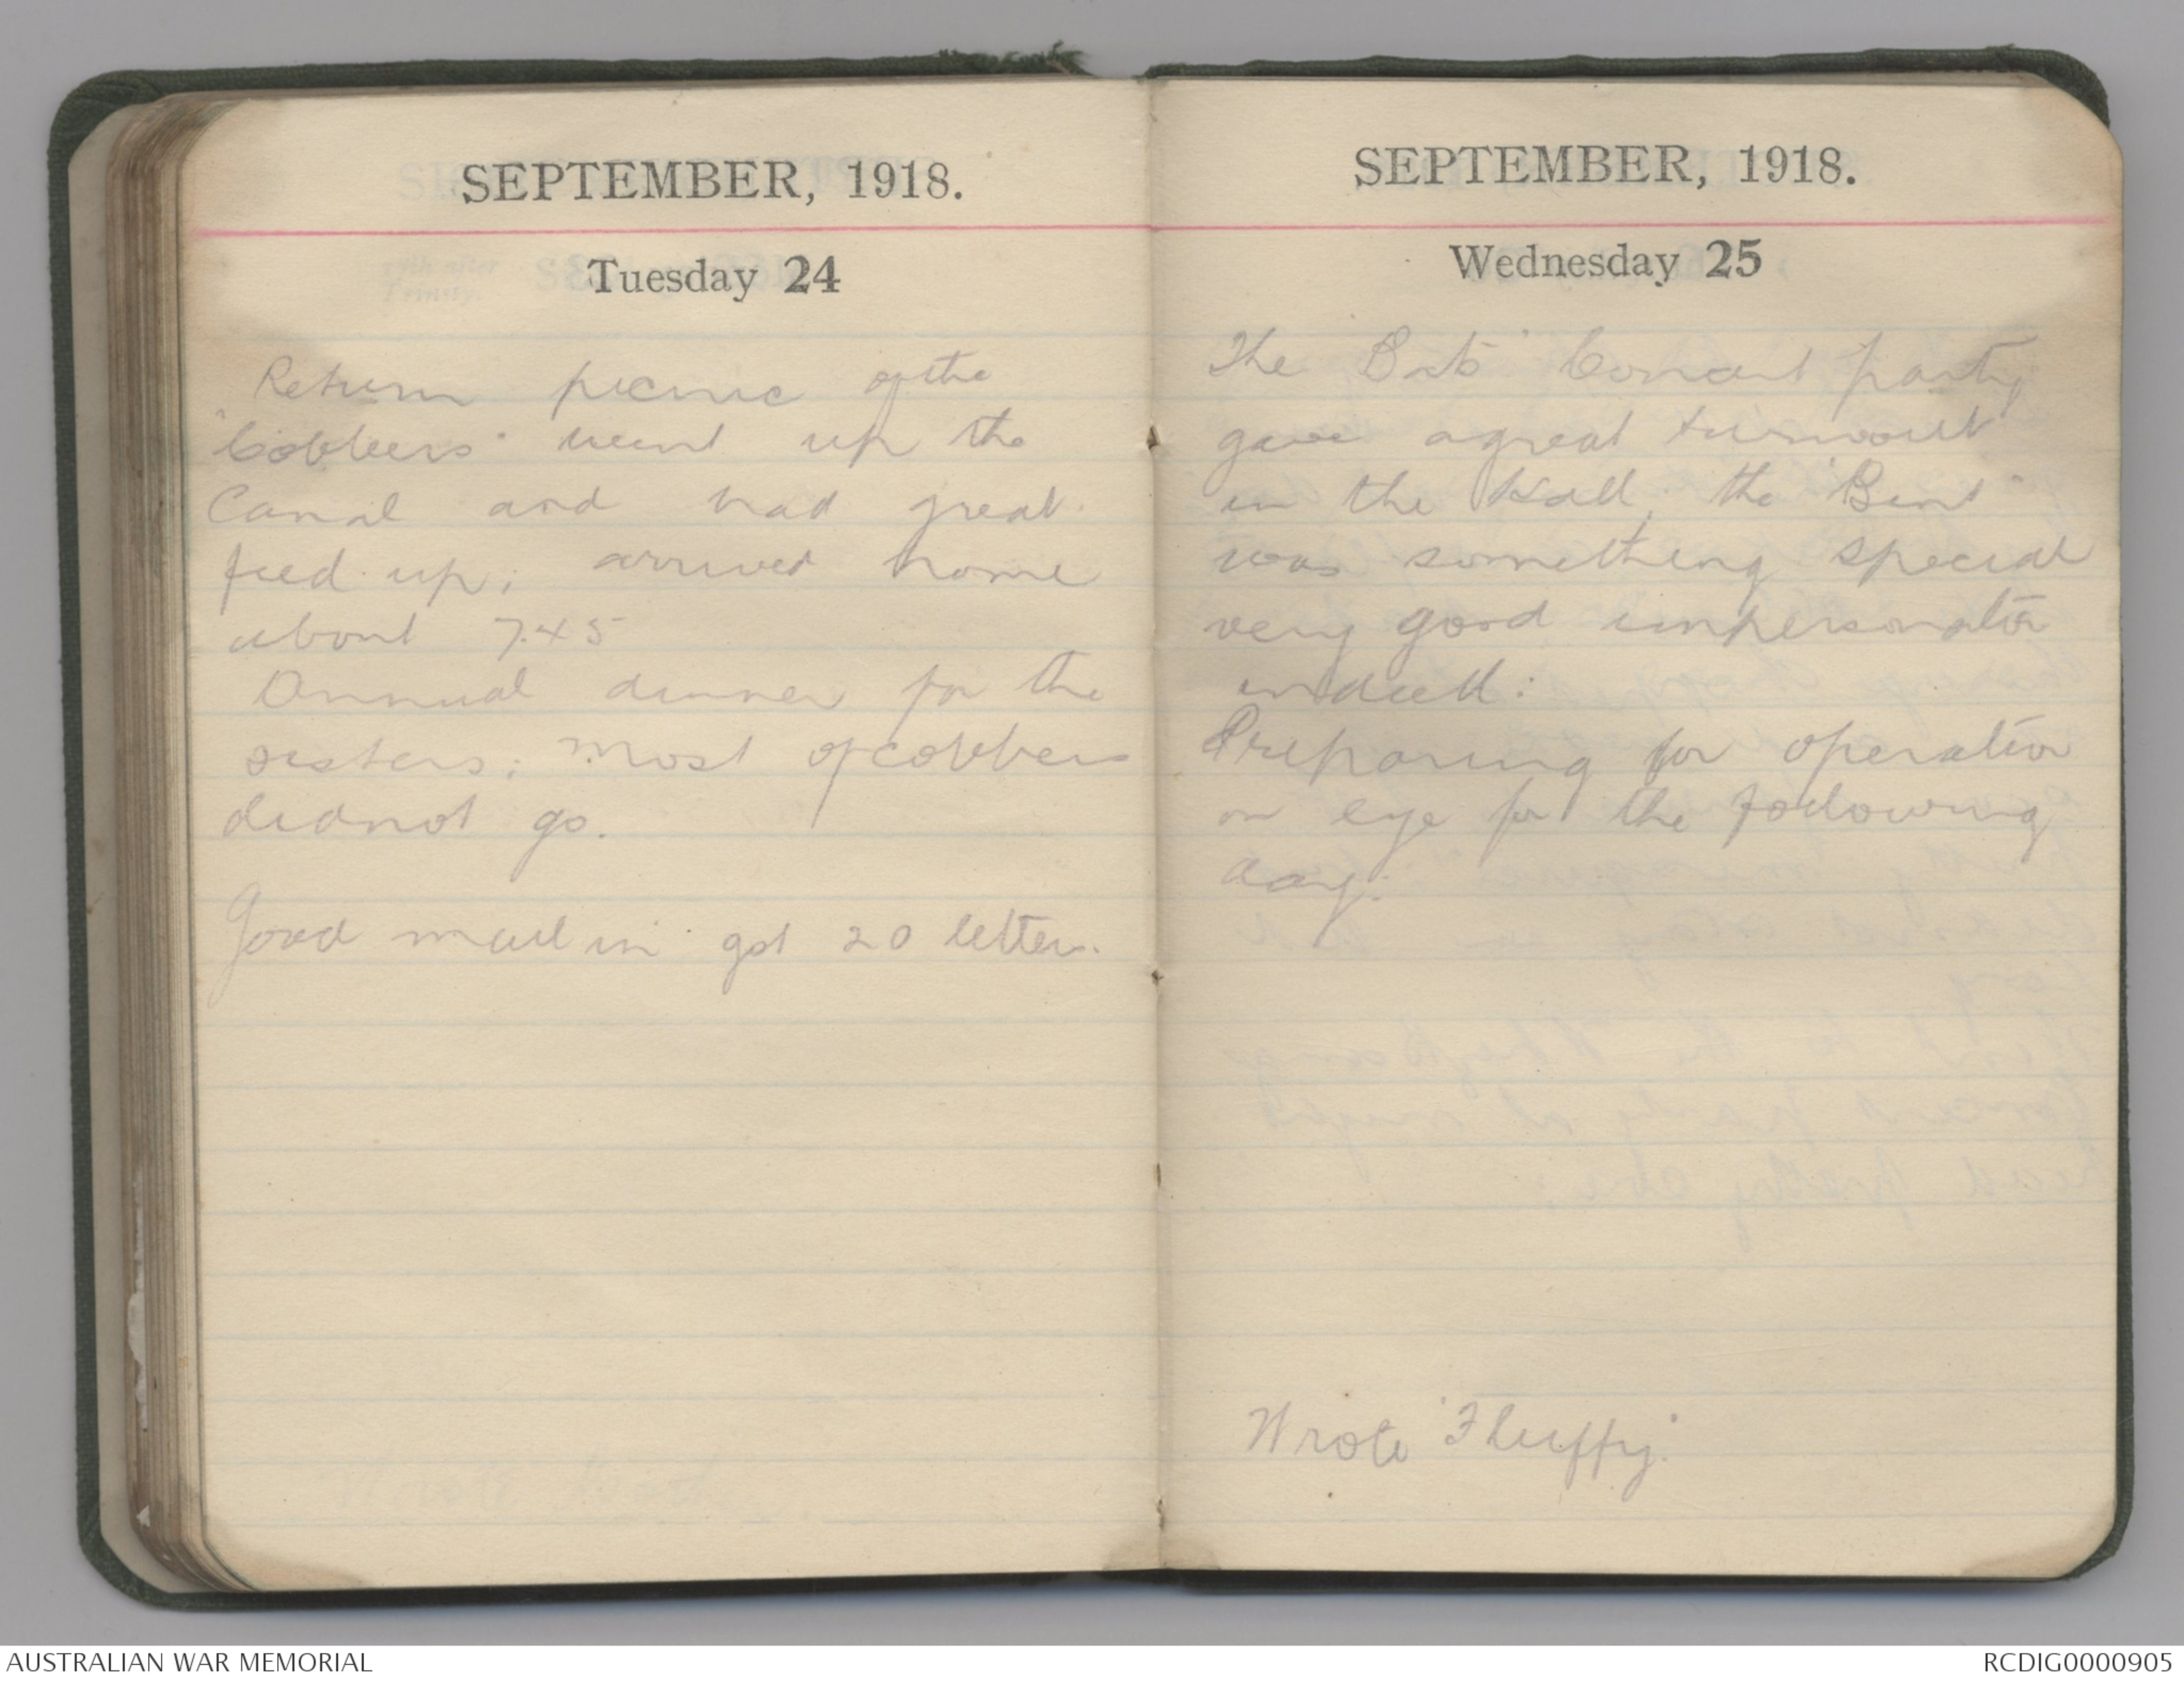 SEPTEMBER, 1918.
Tuesday 24
Return picnic of the
"Cobbers" went up the
Canal and had great
feed up; arrived home
about 7.45
Annual dinner for the
sisters; most of cobbers
didnot go.
Good mail in got 20 letters.
SEPTEMBER, 1918.
Wednesday 25
The Concert party
gave a great turnout
in the Hall, the "Bint"
was something special
very good impersonator
indeed:
Preparing for operation
on eye for the following
day.
Wrote "Fluffy"
AUSTRALIAN WAR MEMORIAL
RCDIG0000905